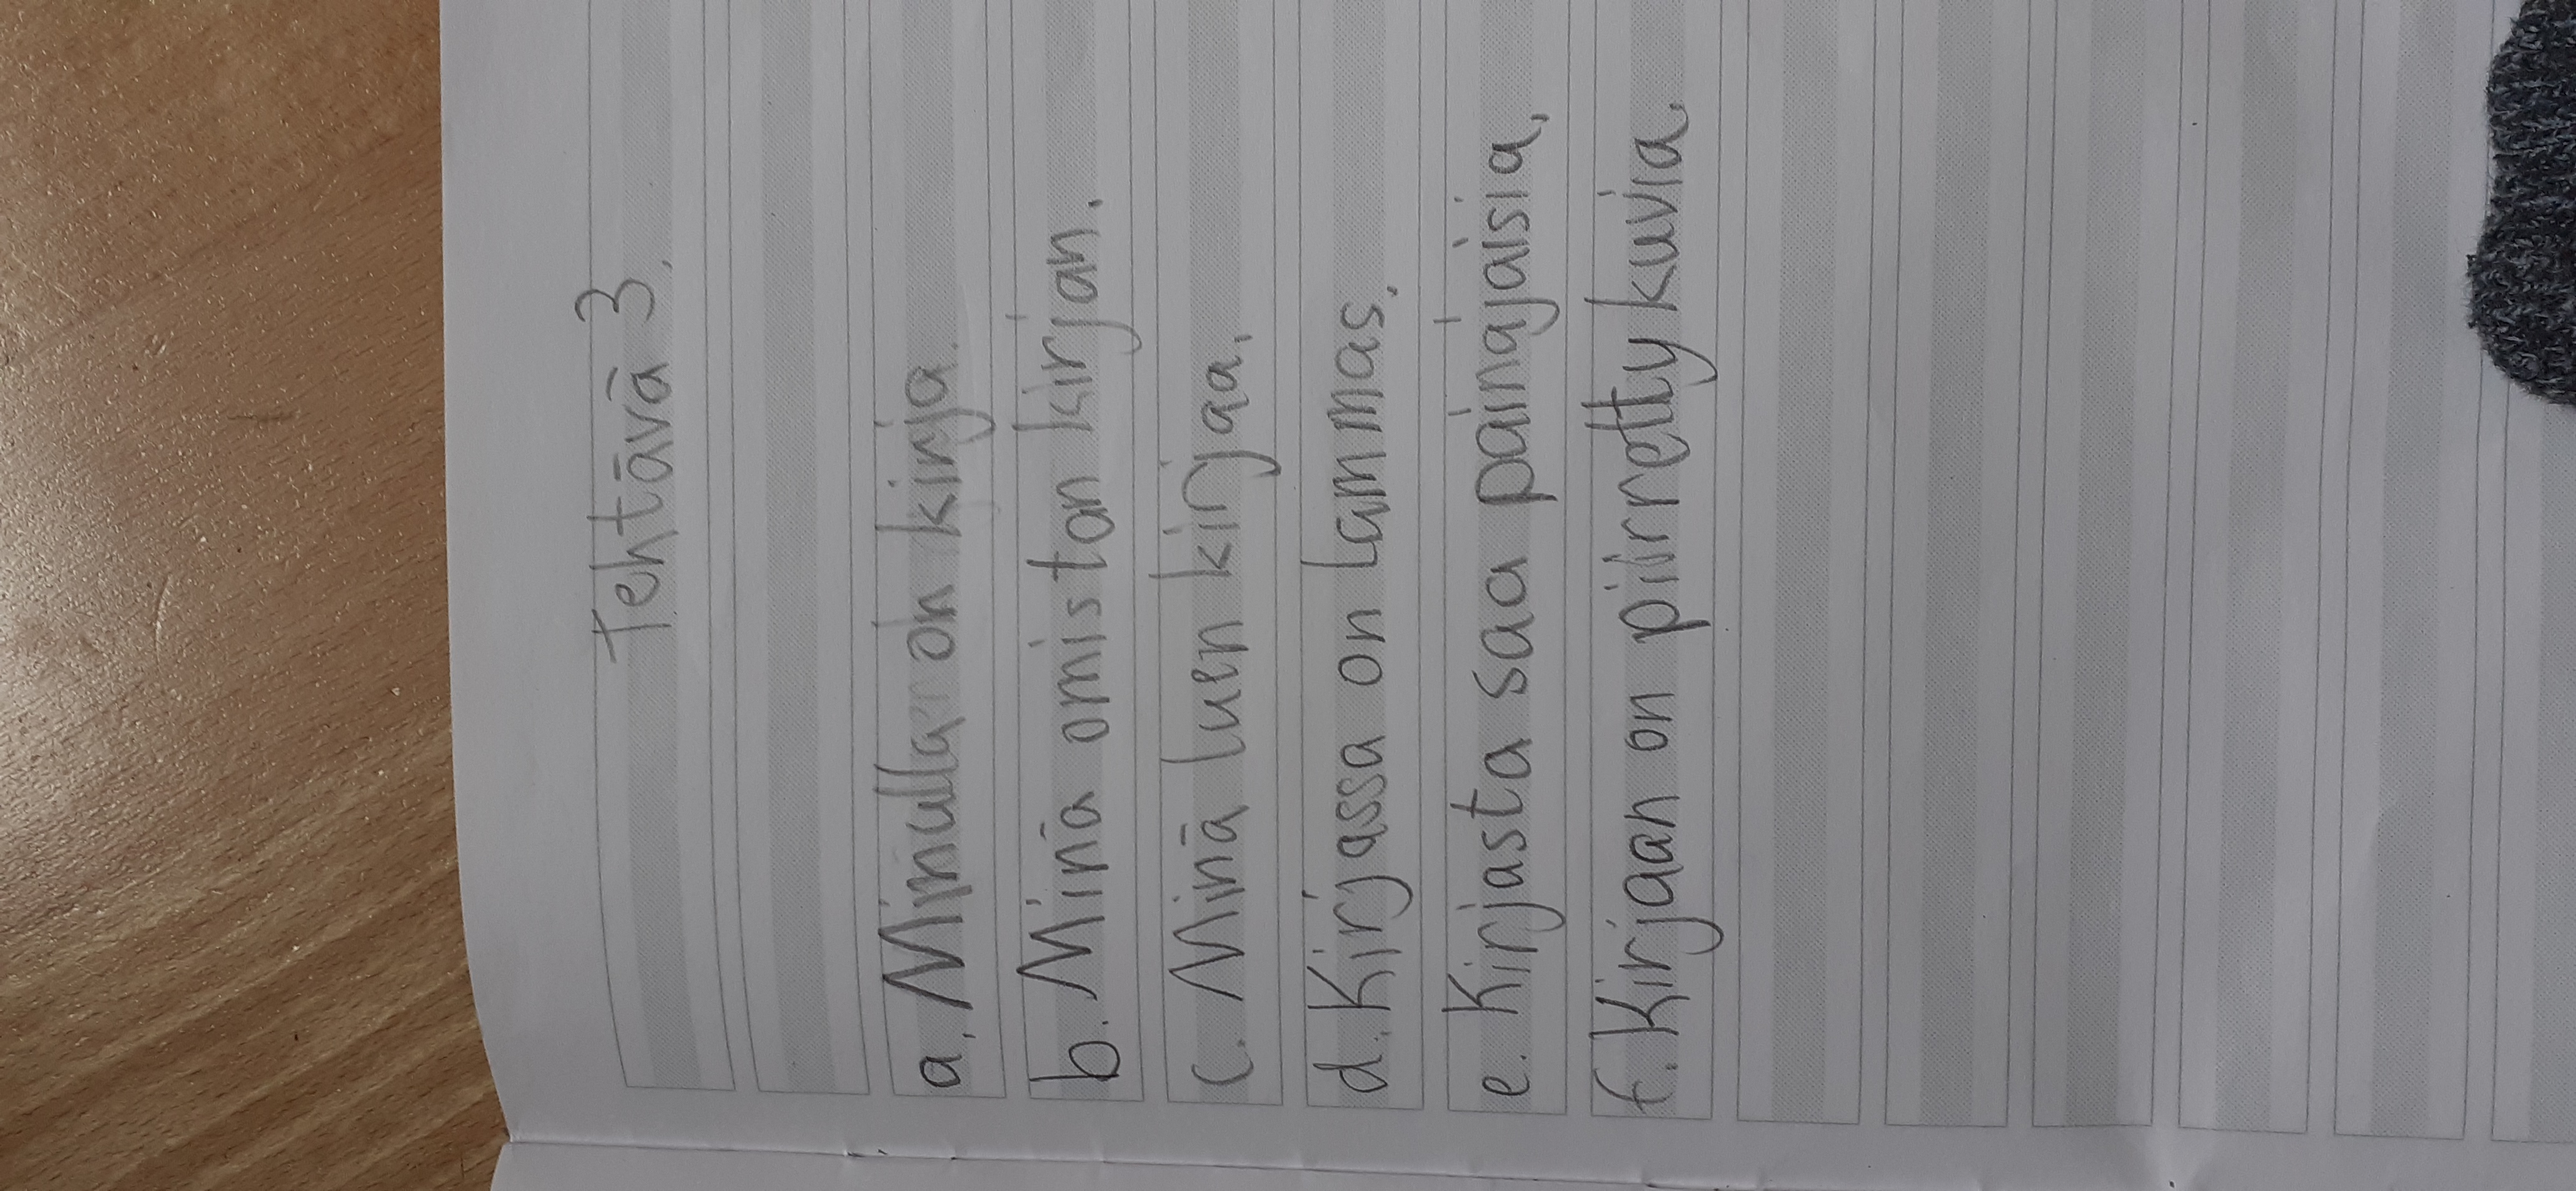 Tehtävä 3.
a. Minulla on kirja.
b. Minä omistan kirjan.
c. Minä luen kirjaa.
d. Kirjassa on lammas.
e. Kirjasta saa painajaisia.
f. Kirjaan on piirretty kuvia.